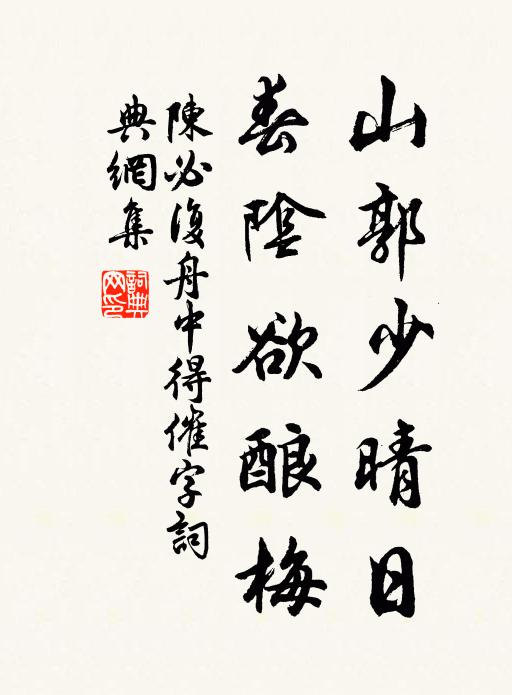 山郭少晴日
春陰欲酿梅
陳必復舟中得催字詞
典網集
詞典網印